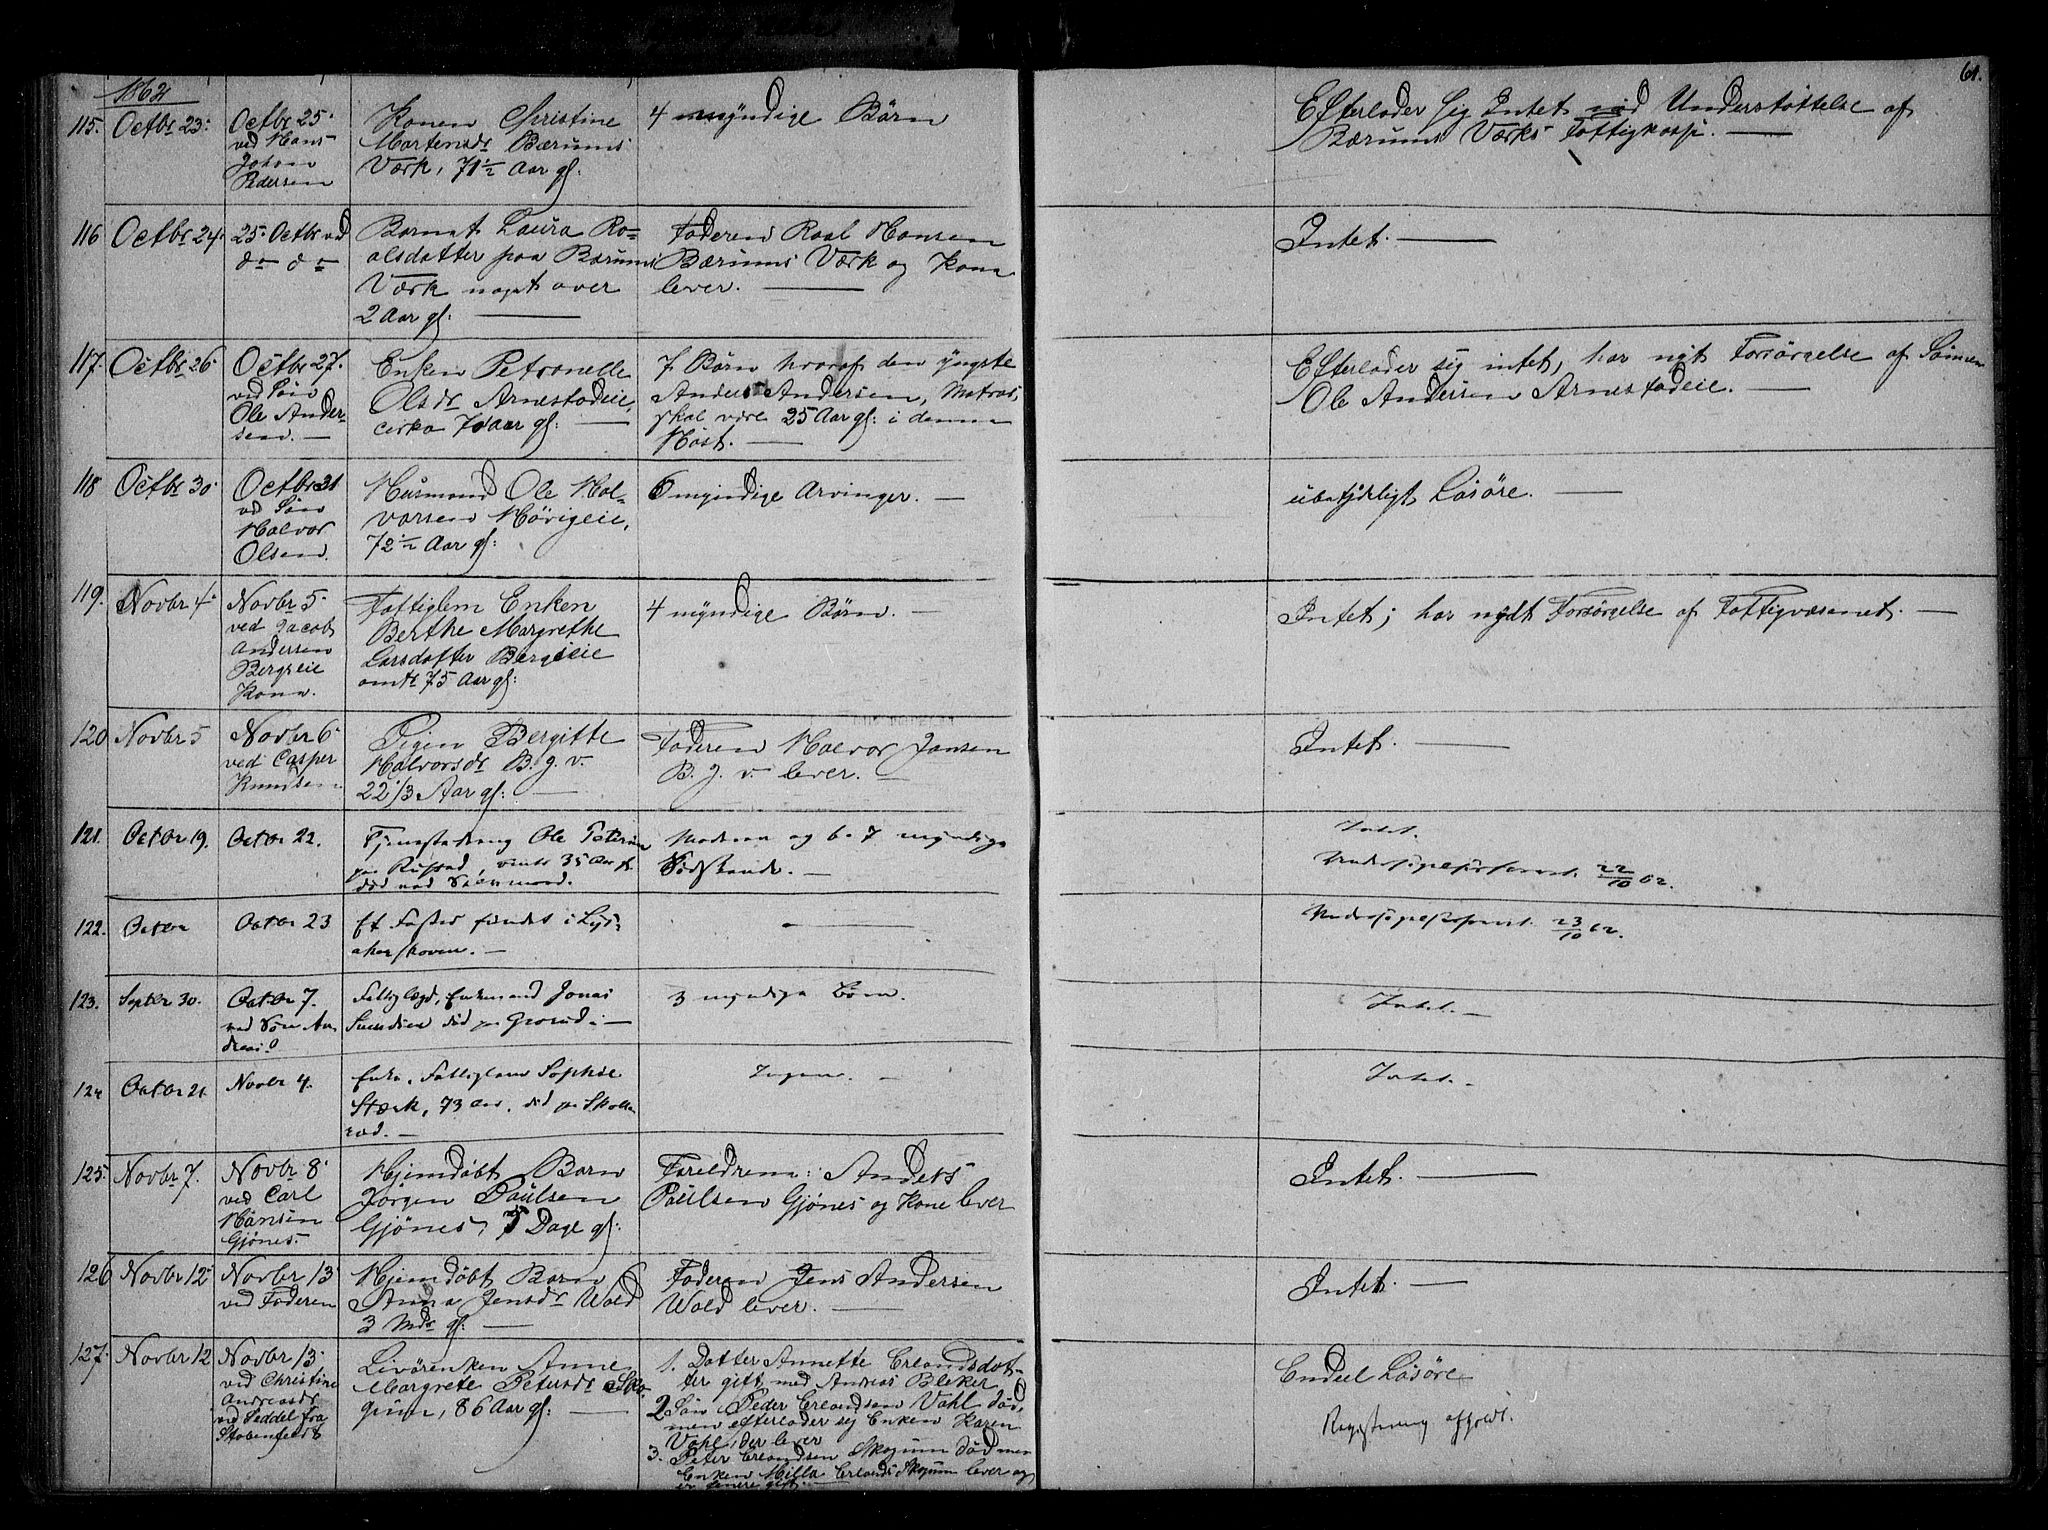 61.
1862
115. Octbr 23. Octbr 25. ved Hans Johan Pedersen
Konen Christine
Martensdr Bærums
Værk, 71½ Aar gl:
4 myndige Børn
Efterlader sig Intet nød Understøttelse af
Bærums Værks Fattigkasse.
116 Octbr 24. 25. Octbr ved do do
Barnet Laura Ro-
alsdatter paa Bærums
Værk noget over
2 Aar gl:
Faderen Roal Hansen
Bærums Værk og Kone
lever.
Intet.
117. Octbr 26. Octbr 27. ved Søn Ole Ander-
sen.
Enken Petronelle
Olsdr Arnestadeie,
cirka 70 Aar gl:
7 Børn hvoraf den yngste
Anders Andersen, Matros,
skal være 25 Aar gl: i denne
Høst.
Efterlader sig intet, har nydt Forsørgelse af Sønnen
Ole Andersen Arnestadeie.
118 Octbr 30. Octbr 31 ved Søn Halvor Olsen.
Husmand Ole Hal-
vorsen Høvigeie,
72½ Aar gl:
6 myndige Arvinger.
ubetydeligt Løsøre.
119. Novbr 4. Novbr 5. ved Jacob Andersen Bergseie Kone.
Fattiglem Enken
Berthe Margrethe
Larsdatter Bergseie
omtr 75 Aar gl:
4 myndige Børn.
Intet; har nydt Forsørgelse af Fattigvæsenet.
120 Novbr 5 Novbr 6. ved Casper Knudsen
Pigen Bergitte
Halvorsdr B. g. v.
22 1/3 Aar gl:
Faderen Halvor Jansen
B. g. v. lever.
Intet.
121. Octbr 19. Octbr 22.
Tjenestedreng Ole Petersen
paa Rustad, omtr 35 Aar gl.
død ved Selvmord.
Moderen og 6-7 myndige
Sødskende.
Intet.
Undersøgelsesforret. 22/10 62.
122. Octbr Octbr 23
Et Foster fundet i Lys-
akerskoven.
Undersøgelsesforret. 23/10 62.
123. Septbr 30. Octbr 7. ved Søn An-
dreas.
Fattiglægd, Enkemand Jonas
Svendsen død paa Grorud.
3 myndige Børn.
Intet.
124 Octbr 21. Novbr 4.
Enke, Fattiglem Sophie
Stærk, 73 Aar, død paa Skolle-
rud.
Ingen.
Intet.
125. Novbr 7. Novbr 8. ved Carl Hansen Gjønes.
Hjemdøbt Barn
Jørgen Paulsen
Gjønes, 5 Dage gl:
Foreldrene: Anders
Paulsen Gjønes og Kone lever
Intet.
126 Novbr 12. Novbr 13. ved Faderen
Hjemdøbt Barn
Anna Jensdr Wold
3 Mdr gl:
Faderen Jens Andersen
Wold lever.
Intet.
127. Novbr 12 Novbr 13. ved Christine Andreasdr ved Seddel fra Stabenfeldt
Livørenken Anne
Margrete Petersdr Sko-
gum, 86 Aar gl:
1. Datter Annette Erlandsdat-
ter gift med Andreas Bleker
2. Søn Peder Erlandsen Vahl død,
men efterlader sig Enken Karen
Vahl, der lever
3. Peter Erlandsen Skogum død men
Enken Milla Erlands Skogum lever og
er senere gift.
Endeel Løsøre
Registrering afholdt.